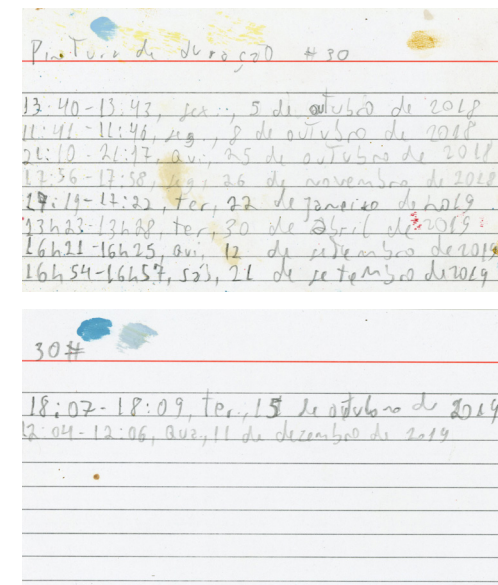 Pintura de duração #30
13:40-13:43, sex., 5 de outubro de 2018
11:41-11:46, seg., 8 de outubro de 2018
21:10-21:17, qui., 25 de outubro de 2018
17:56-17:58, seg., 26 de novembro de 2018
17:19-17:22, ter, 22 de janeiro de 2019
13h23-13h28, ter, 30 de abril de 2019
16h21-16h25, qui, 12 de setembro de 2019
16h54-16h57, sáb, 21 de setembro de 2019
30#
18:07-18:09, ter., 15 de outubro de 2019
12:04-12:06, qua., 11 de dezembro de 2019